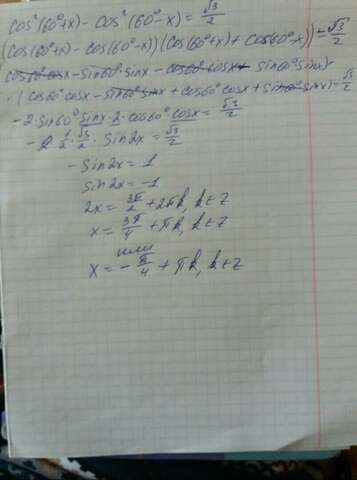 cos²(60°+x) - cos²(60°-x) = √3/2
(cos(60°+x) - cos(60°-x))(cos(60°+x) + cos(60°-x)) = √3/2
(cos60°cosx - sin60°·sinx - cos60°cosx + sin60°sinx)·
·(cos60°cosx - sin60°sinx + cos60°cosx + sin60°sinx) = √3/2
-2·sin60°sinx·2·cos60°cosx = √3/2
-2·1/2·√3/2·sin2x = √3/2
-sin2x = 1
sin2x = -1
2x = 3π/2 + 2πk, k∈Z
x = 3π/4 + πk, k∈Z
или
x = -π/4 + πk, k∈Z